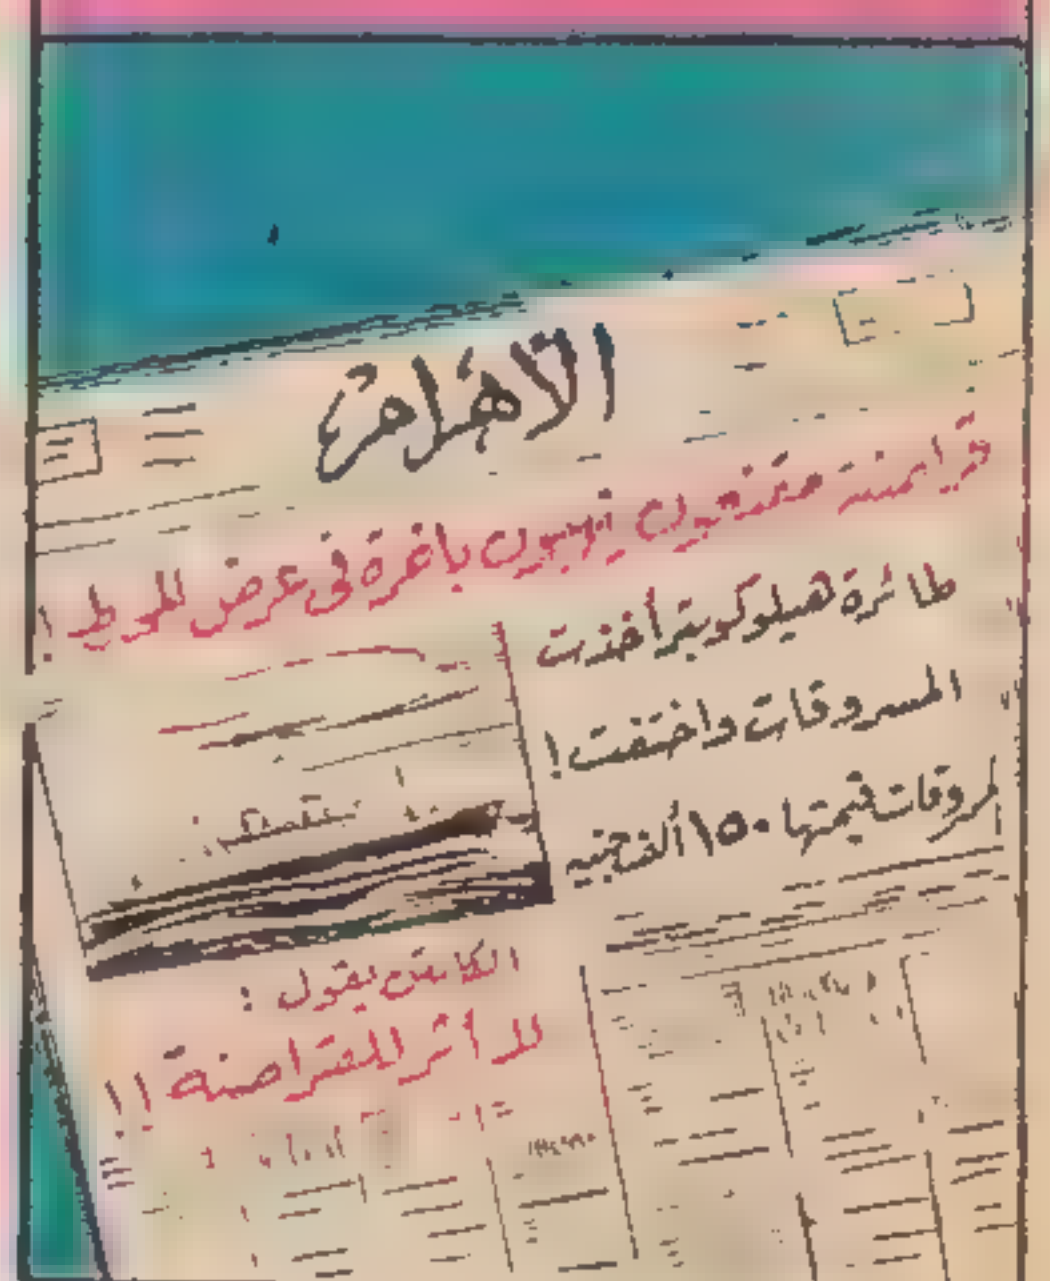 الأهرام
قراصنة مقنعون ينهبون باخرة في عرض المحيط !
طائرة هيلوكوبتر أخذت
المسروقات واختفت !
المسروقات قيمتها ١٥٠ ألف جنيه
الكابتن يقول :
لا أثر للقراصنة !!